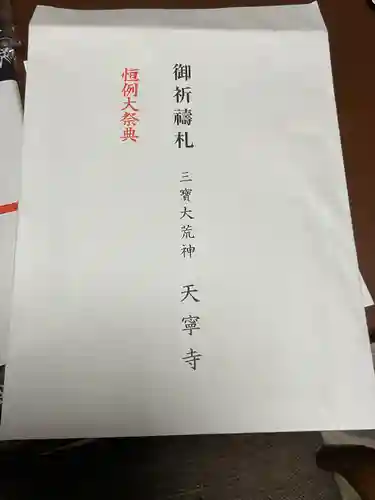 御祈禱札
三寳大荒神 天寧寺
恒例大祭典